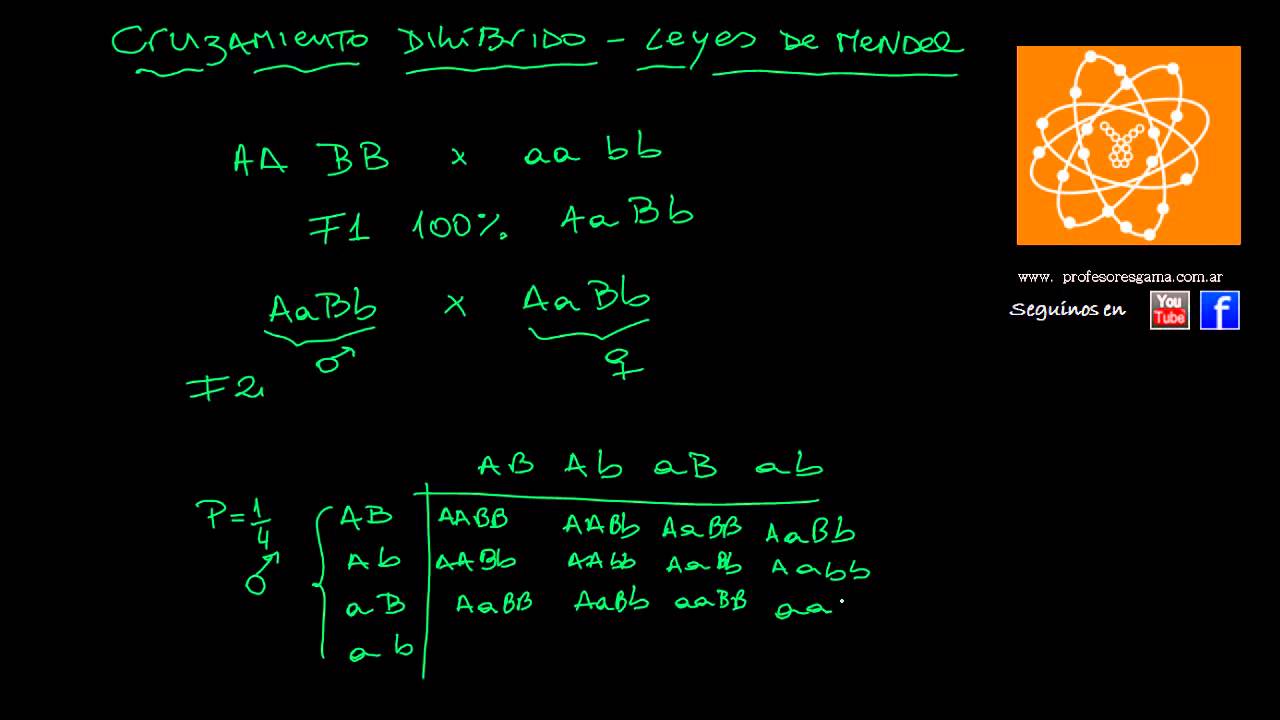 CRUZAMIENTO DIHÍBRIDO - LEYES DE MENDEL
AA BB x aa bb
F1 100% AaBb
AaBb x AaBb
♂ ♀
F2
AB Ab aB ab
P=1/4 AB AABB AABb AaBB AaBb
♂ Ab AABb AAbb AaBb Aabb
aB AaBB AaBb aaBB aa
ab
www. profesoresgama.com.ar
Seguinos en You Tube f